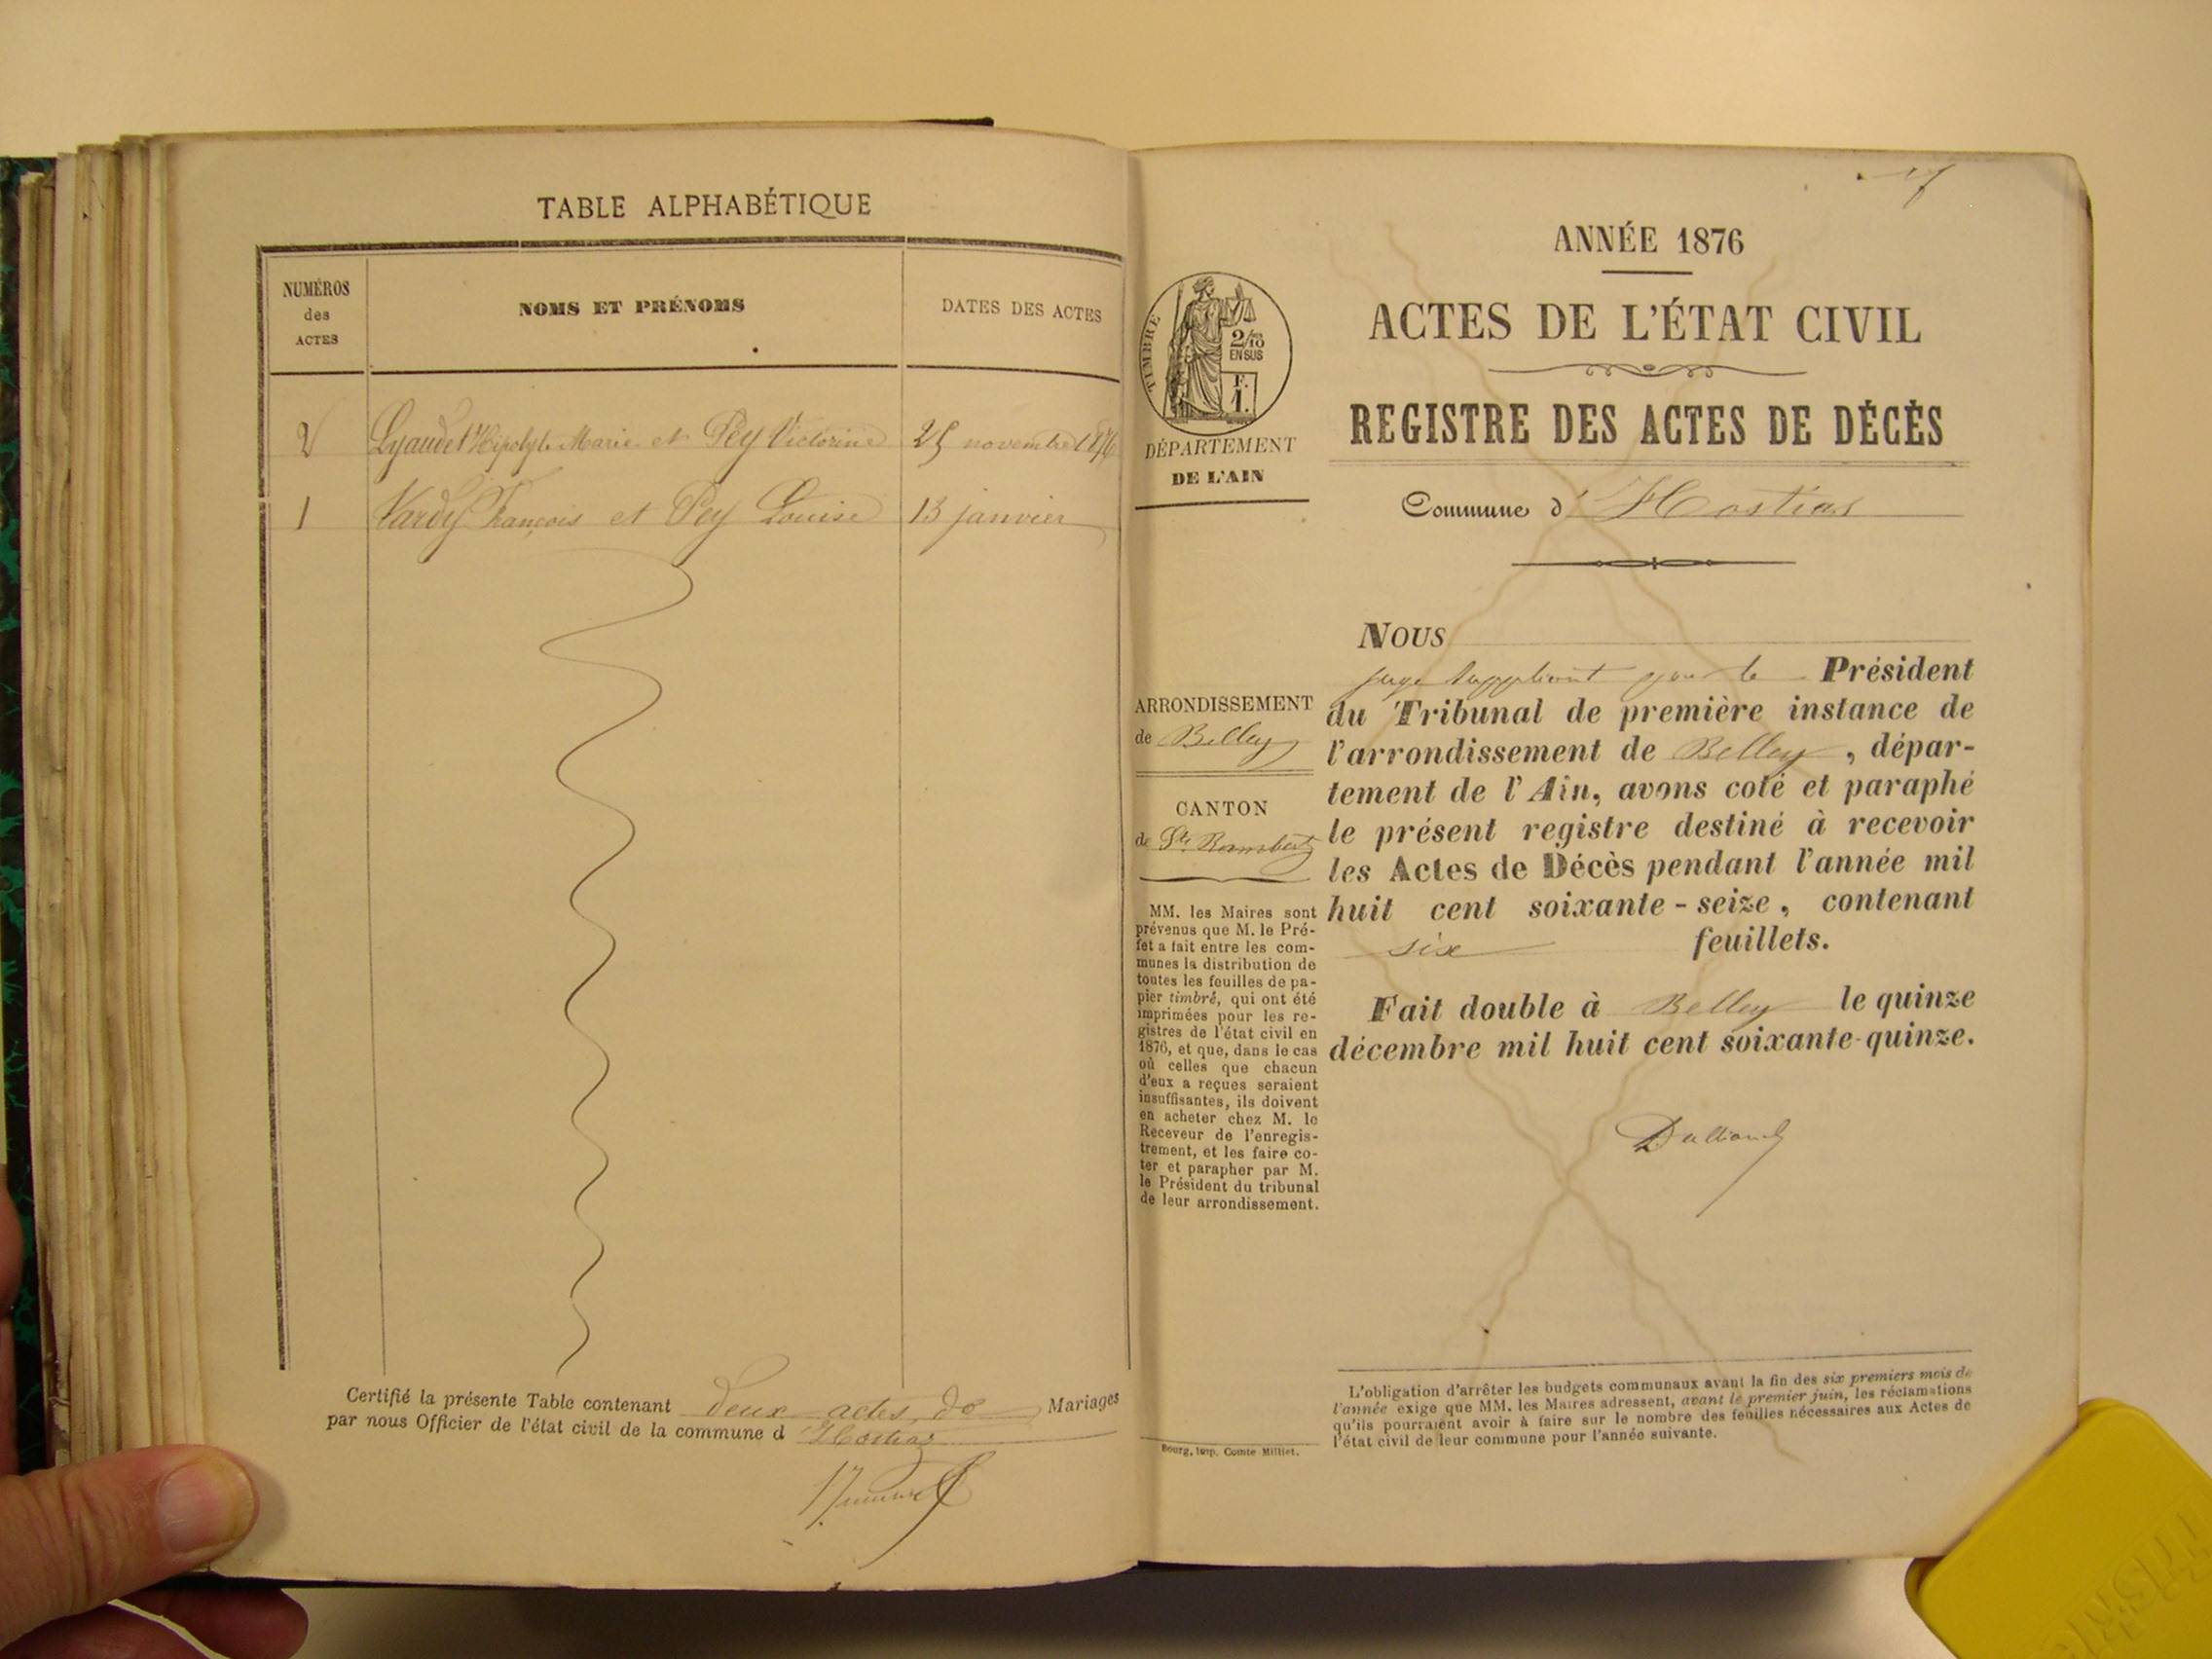 TABLE ALPHABÉTIQUE
NUMÉROS
des
ACTES
NOMS ET PRÉNOMS
DATES DES ACTES
2 Lyaudet Hipolyte Marie et Pey Victorine 25 novembre 1876
1 Vardy François et Pey Louise 13 janvier
Certifié la présente Table contenant deux actes de Mariages
par nous Officier de l'état civil de la commune d'Hostias
ANNÉE 1876
ACTES DE L'ÉTAT CIVIL
REGISTRE DES ACTES DE DÉCÈS
Commune d'Hostias
TIMBRE
2/10
EN SUS
F.
1.
DÉPARTEMENT
DE L'AIN
ARRONDISSEMENT
de Belley
CANTON
de St. Rambert
MM. les Maires sont
prévenus que M. le Pré-
fet a fait entre les com-
munes la distribution de
toutes les feuilles de pa-
pier timbré, qui ont été
imprimées pour les re-
gistres de l'état civil en
1876, et que, dans le cas
où celles que chacun
d'eux a reçues seraient
insuffisantes, ils doivent
en acheter chez M. le
Receveur de l'enregis-
trement, et les faire co-
ter et parapher par M.
le Président du tribunal
de leur arrondissement.
Bourg, imp. Comte-Milliet.
NOUS
juge suppléant pour le Président
du Tribunal de première instance de
l'arrondissement de Belley, dépar-
tement de l'Ain, avons coté et paraphé
le présent registre destiné à recevoir
les Actes de Décès pendant l'année mil
huit cent soixante-seize, contenant
six feuillets.
Fait double à Belley le quinze
décembre mil huit cent soixante-quinze.
L'obligation d'arrêter les budgets communaux avant la fin des six premiers mois de
l'année exige que MM. les Maires adressent, avant le premier juin, les réclamations
qu'ils pourraient avoir à faire sur le nombre des feuilles nécessaires aux Actes de
l'état civil de leur commune pour l'année suivante.